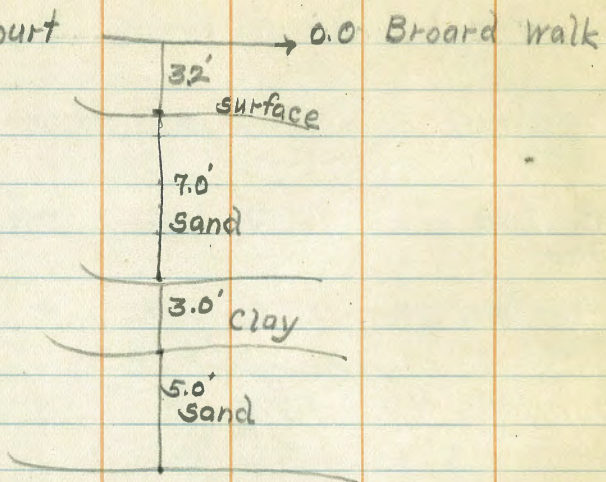 0.0 Broard Walk
3.2'
surface
7.0'
Sand
3.0' Clay
5.0'
Sand